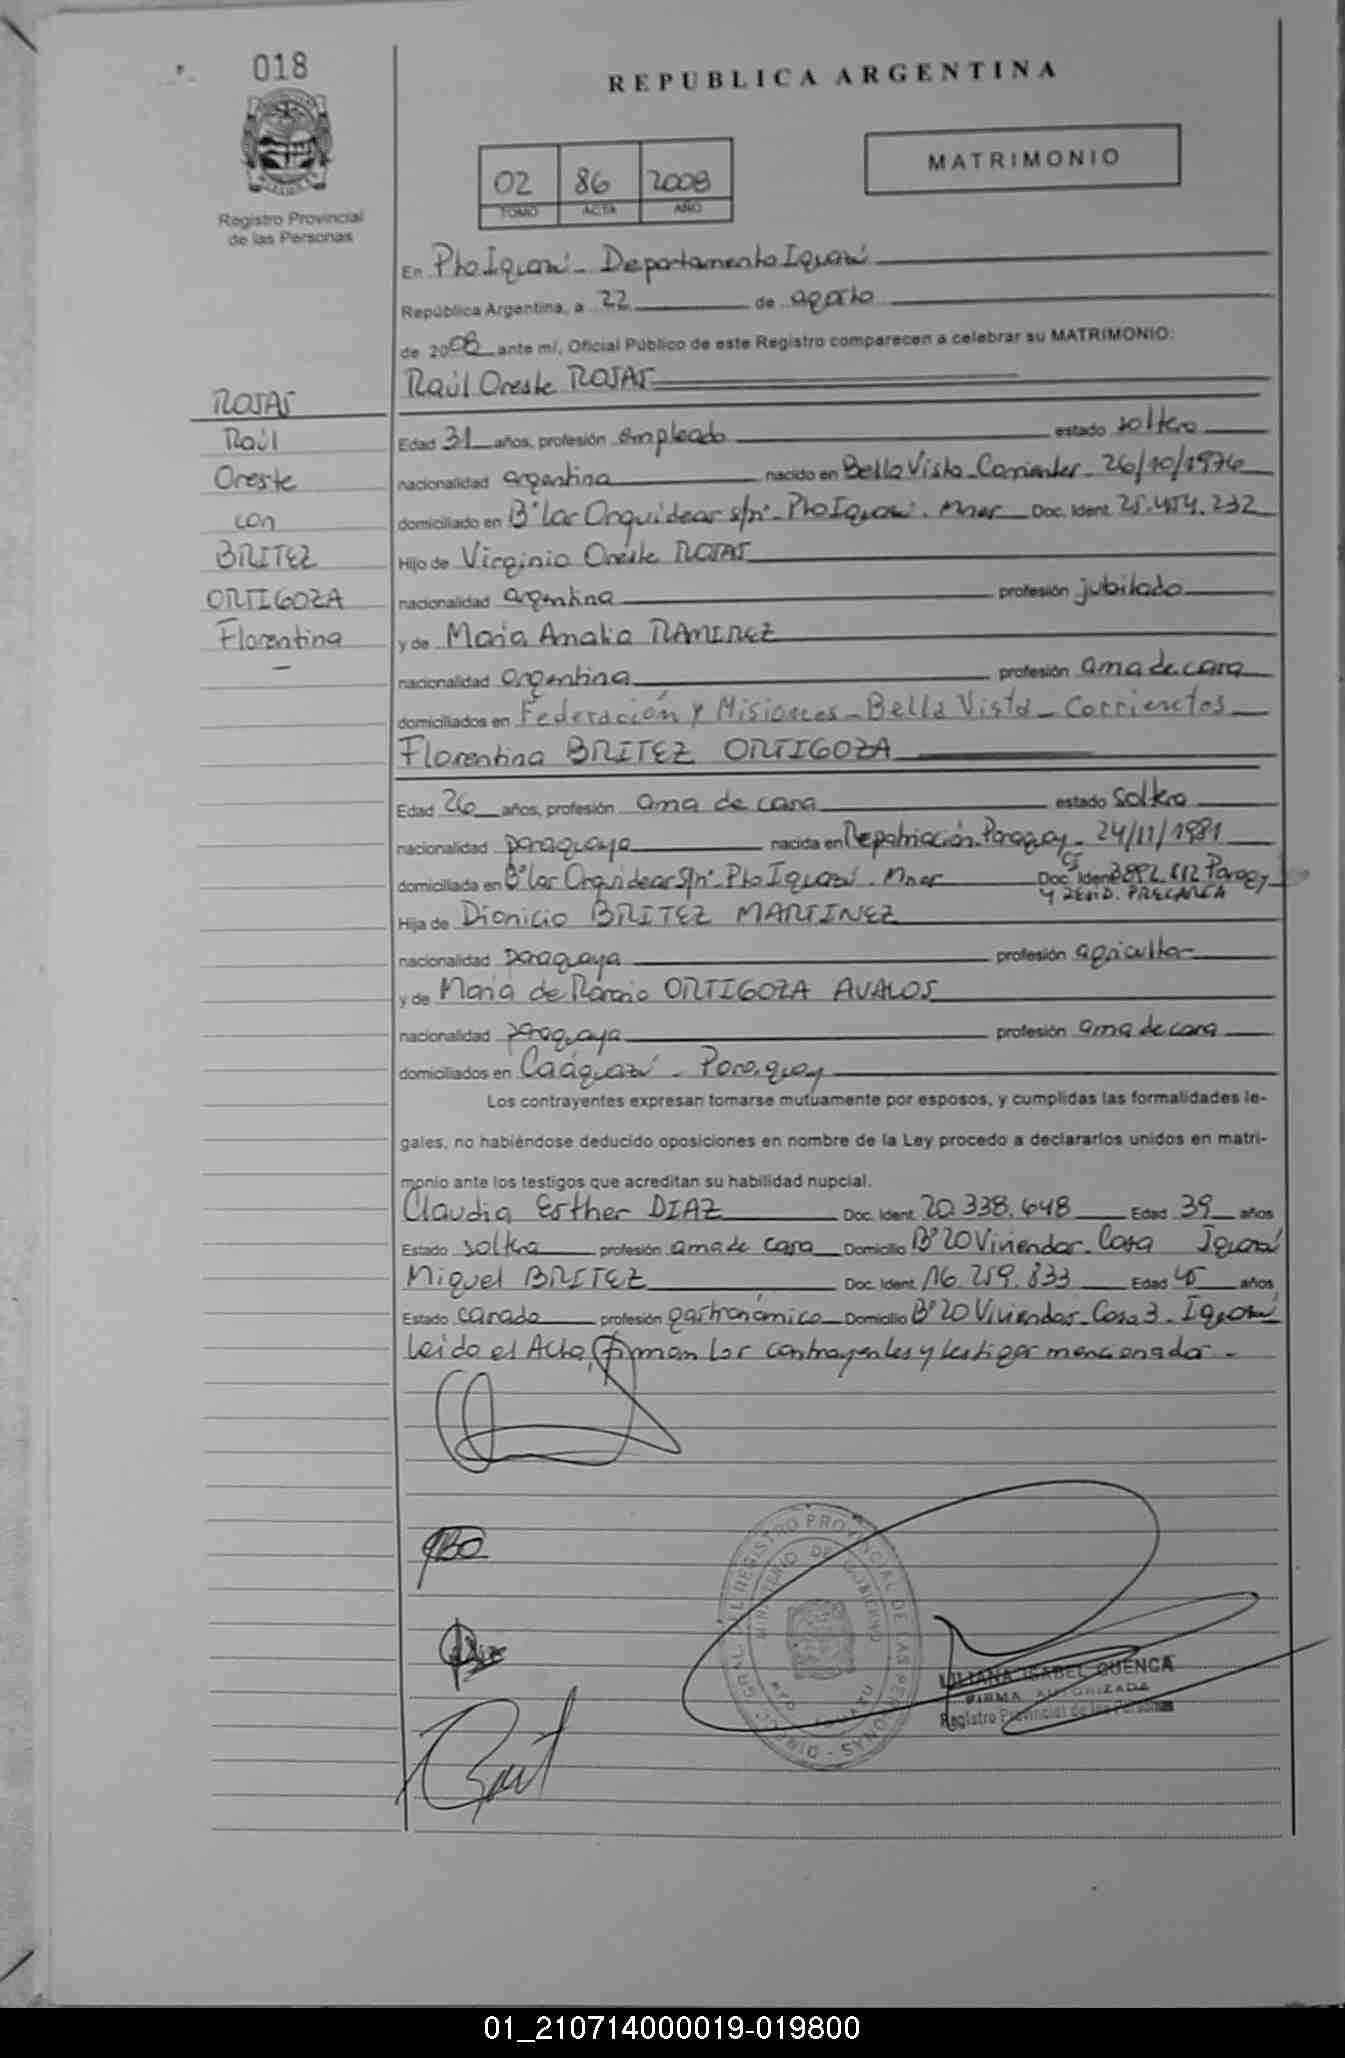 018
REPUBLICA ARGENTINA
MATRIMONIO
02 86 2008
TOMO ACTA AÑO
Registro Provincial
de las Personas
En Pto Iguazú - Departamento Iguazú
República Argentina, a 22 de agosto
de 2008 ante mí, Oficial Público de este Registro comparecen a celebrar su MATRIMONIO:
Raúl Oreste ROJAS
ROJAS
Raúl
Oreste
con
BRITEZ
ORTIGOZA
Florentina
Edad 31 años, profesión empleado estado soltero
nacionalidad argentina nacido en Bella Vista - Corrientes - 26/10/1976
domiciliado en Bº Las Orquideas s/nº - Pto Iguazú - Mnes Doc. Ident. 25.454.232
Hijo de Virginio Oreste ROJAS
nacionalidad argentina profesión jubilado
y de Maria Amalia RAMIREZ
nacionalidad argentina profesión ama de casa
domiciliados en Federación y Misiones - Bella Vista - Corrientes
Florentina BRITEZ ORTIGOZA
Edad 26 años, profesión ama de casa estado soltera
nacionalidad paraguaya nacida en Repatriación - Paraguay - 24/11/1981
domiciliada en Bº Las Orquideas s/nº - Pto Iguazú - Mnes Doc. Ident. CI 3892.812 Paraguay
y RESID. PRECARIA
Hija de Dionicio BRITEZ MARTINEZ
nacionalidad paraguaya profesión agricultor
y de Maria de Rosario ORTIGOZA AVALOS
nacionalidad paraguaya profesión ama de casa
domiciliados en Caaguazú - Paraguay
Los contrayentes expresan tomarse mutuamente por esposos, y cumplidas las formalidades le-
gales, no habiéndose deducido oposiciones en nombre de la Ley procedo a declararlos unidos en matri-
monio ante los testigos que acreditan su habilidad nupcial.
Claudia Esther DIAZ Doc. Ident. 20.338.648 Edad 39 años
Estado soltera profesión ama de casa Domicilio Bº 20 Viviendas - Casa Iguazú
Miguel BRITEZ Doc. Ident. 16.259.833 Edad 45 años
Estado casado profesión gastronómico Domicilio Bº 20 Viviendas - Casa 3 - Iguazú
Leido el Acta, firman los contrayentes y testigos mencionados -
DIRECC. GRAL. DEL REGISTRO PROVINCIAL DE LAS PERSONAS
MINISTERIO DE GOBIERNO
LILIANA ISABEL CUENCA
FIRMA AUTORIZADA
Registro Provincial de las Personas
01_210714000019-019800